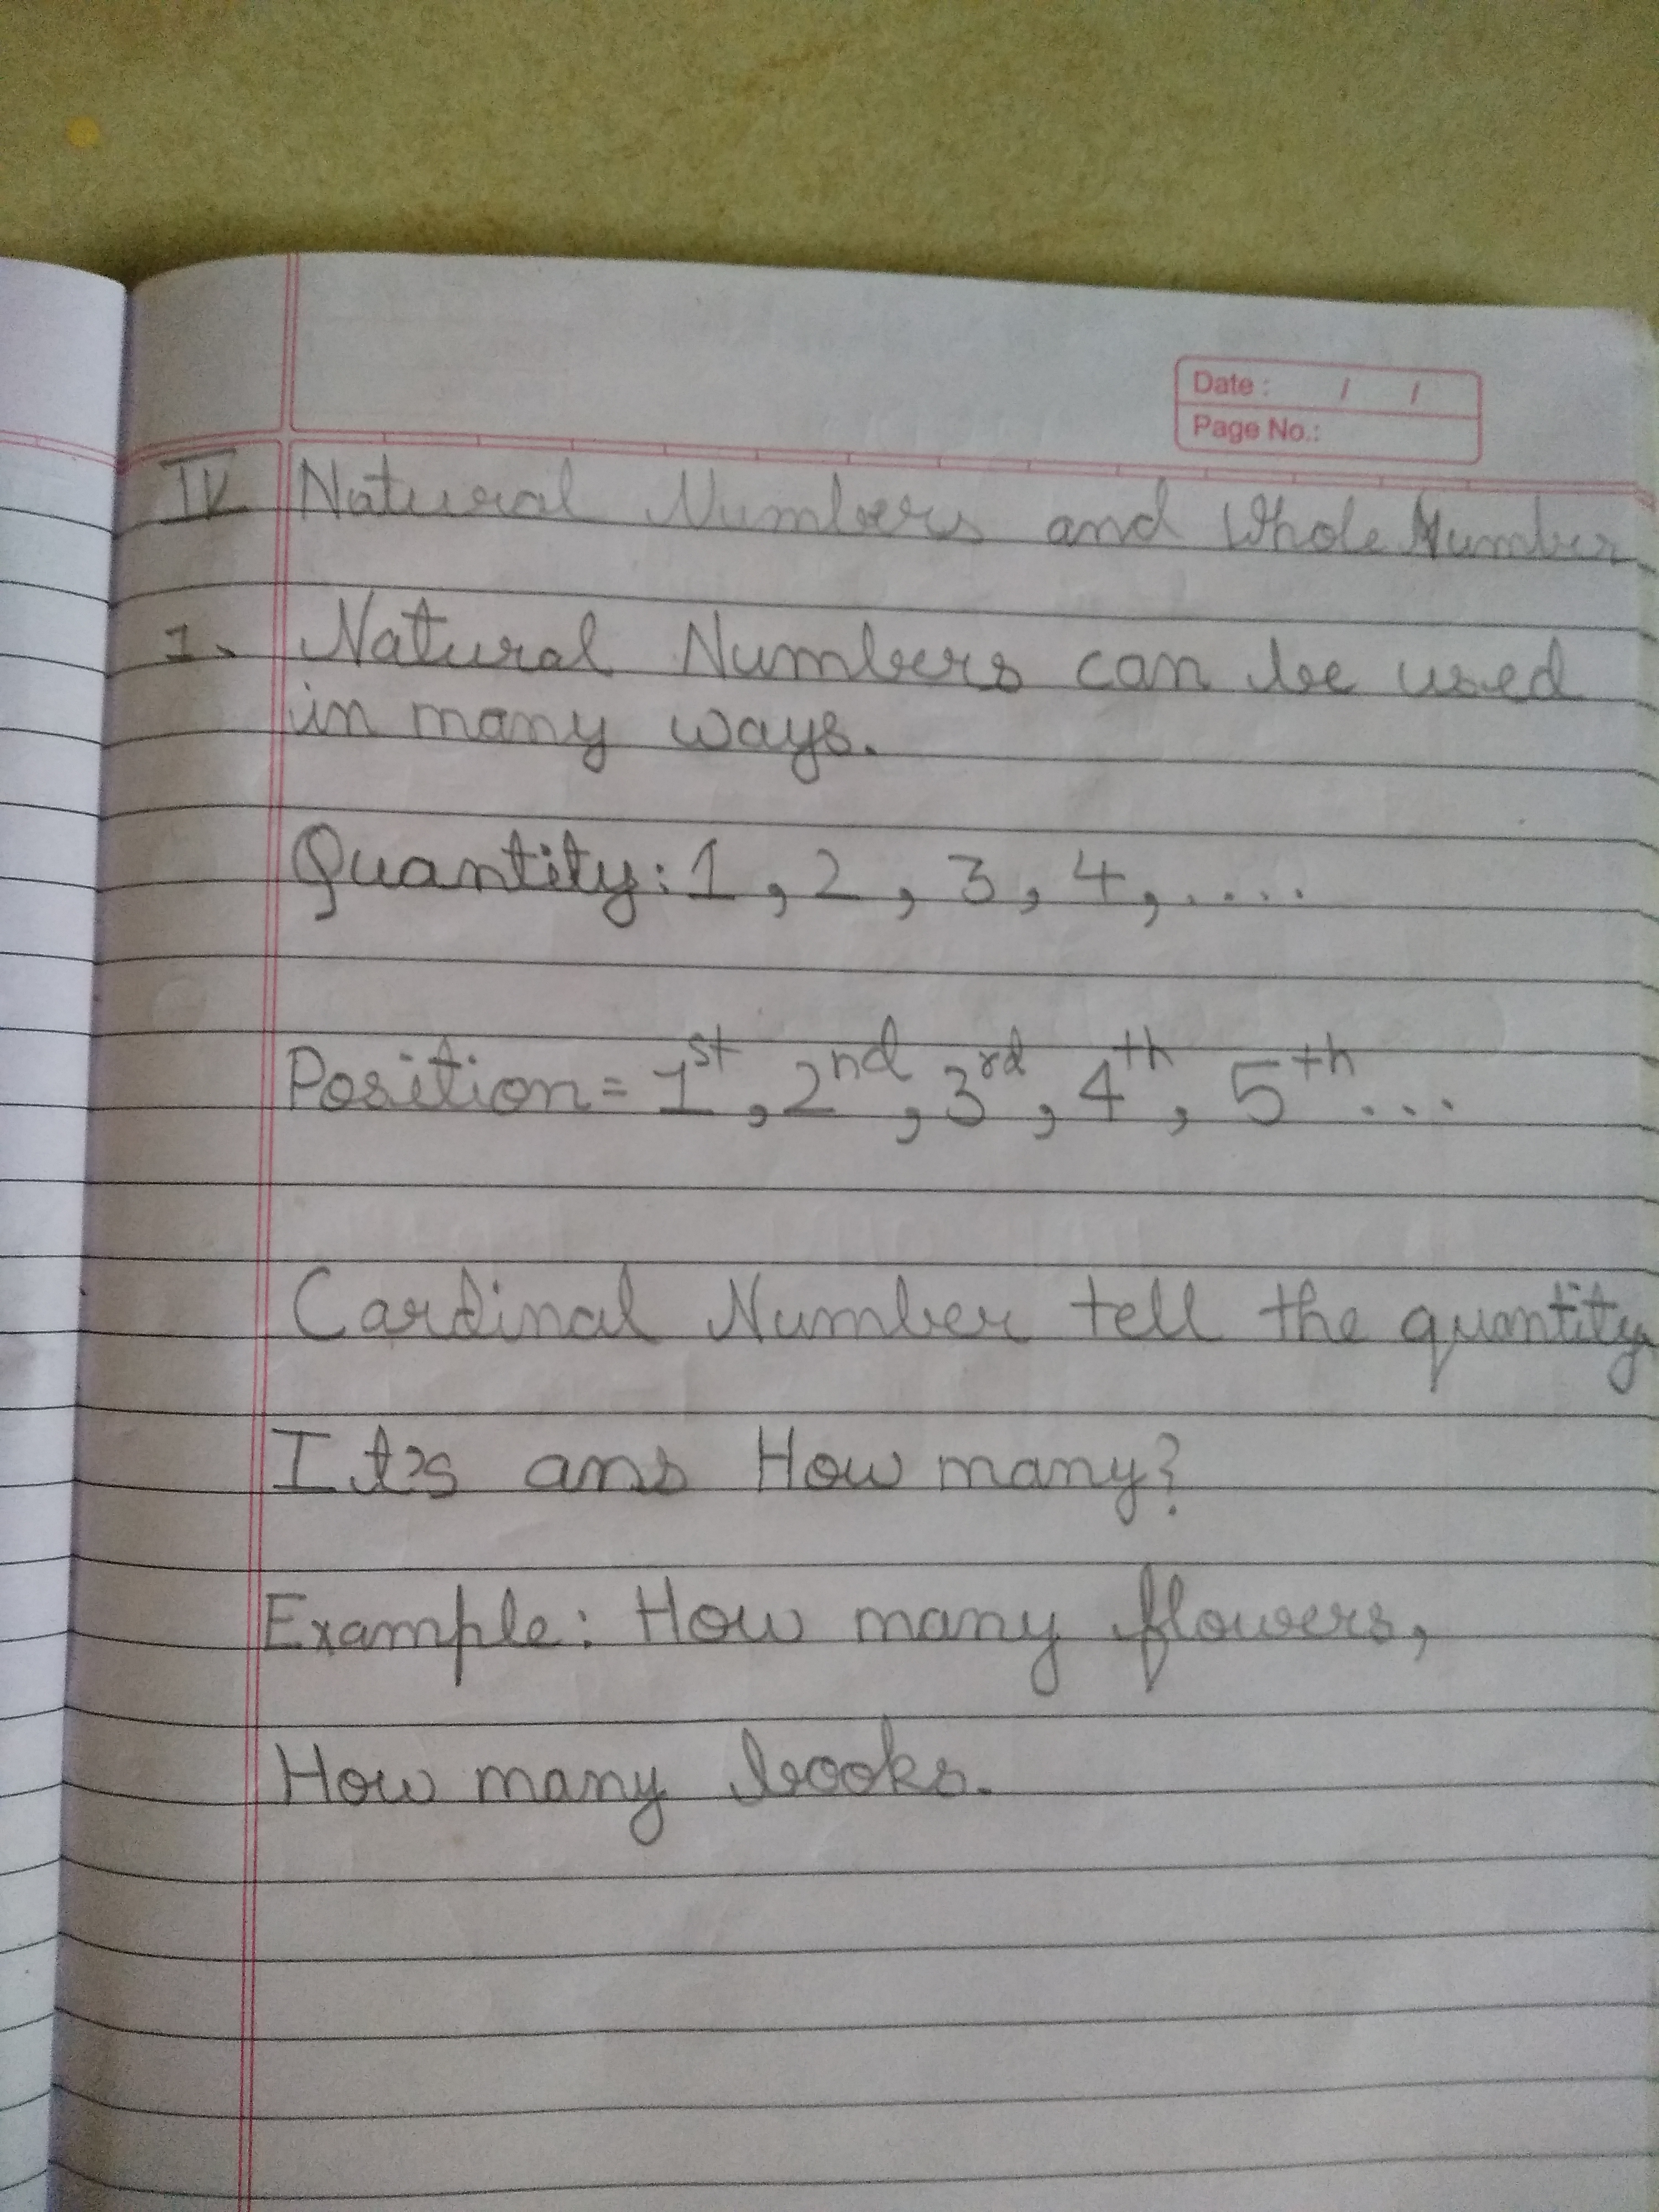 Date : / /
Page No.:
IV Natural Numbers and Whole Number
1. Natural Numbers can be used
in many ways.
Quantity: 1, 2, 3, 4, ....
Position = 1st, 2nd, 3rd, 4th, 5th ...
Cardinal Number tell the quantity.
It's ans How many?
Example: How many flowers,
How many books.